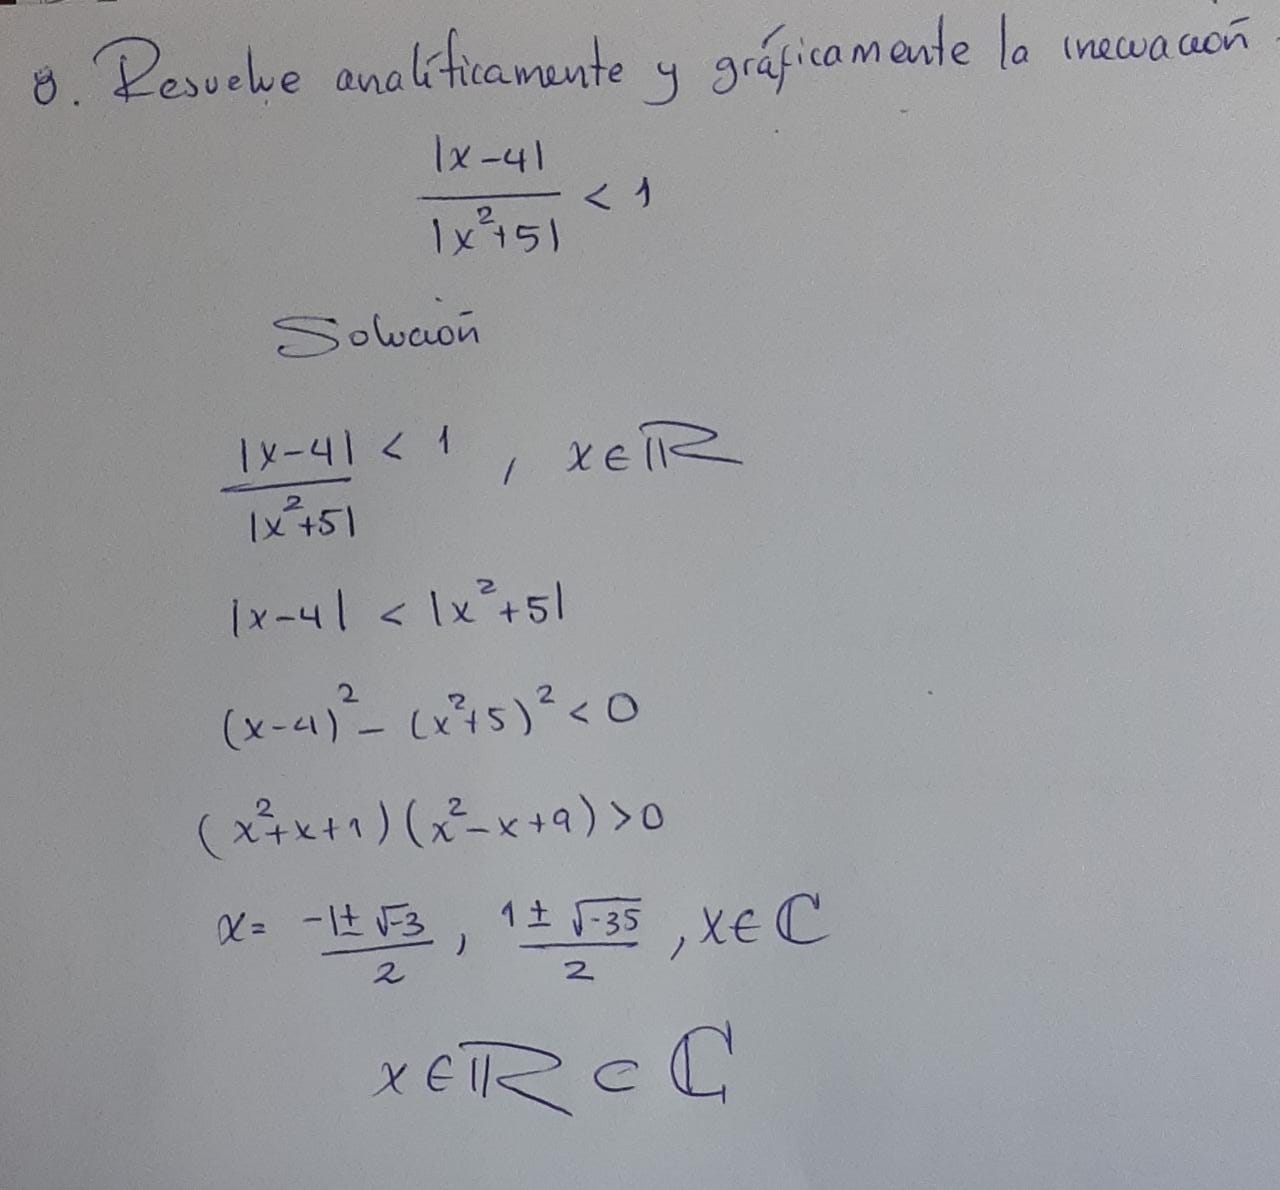 8. Resuelve analíticamente y gráficamente la inecuación.
|x-4| / |x²+5| < 1
Solución
|x-4| / |x²+5| < 1 , x∈ℝ
|x-4| < |x²+5|
(x-4)² - (x²+5)² < 0
(x²+x+1)(x²-x+9)>0
x= (-1±√-3)/2 , (1±√-35)/2 , x∈ℂ
x∈ℝ⊂ℂ